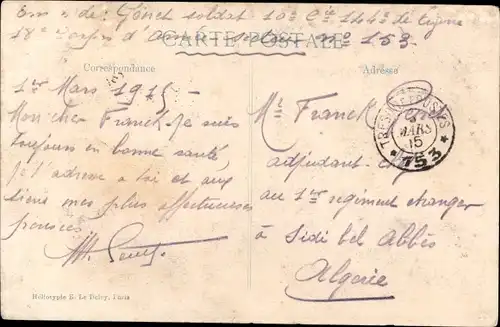 de: Genet soldat 10e Cie 144e de ligne
18e Corps d'Armée Secteur No 153
CARTE POSTALE
Correspondance
Adresse
1er Mars 1915
Mon cher Franck je suis
toujours en bonne santé
je t'adresse a toi et aux
tiens mes plus affectueuses
pensées
Mr Franck
adjudant
au 1er regiment etranger
à Sidi bel Abbès
Algerie
TRESOR ET POSTES
MARS
15
* 153 *
Héliotypie E. Le Deley, Paris